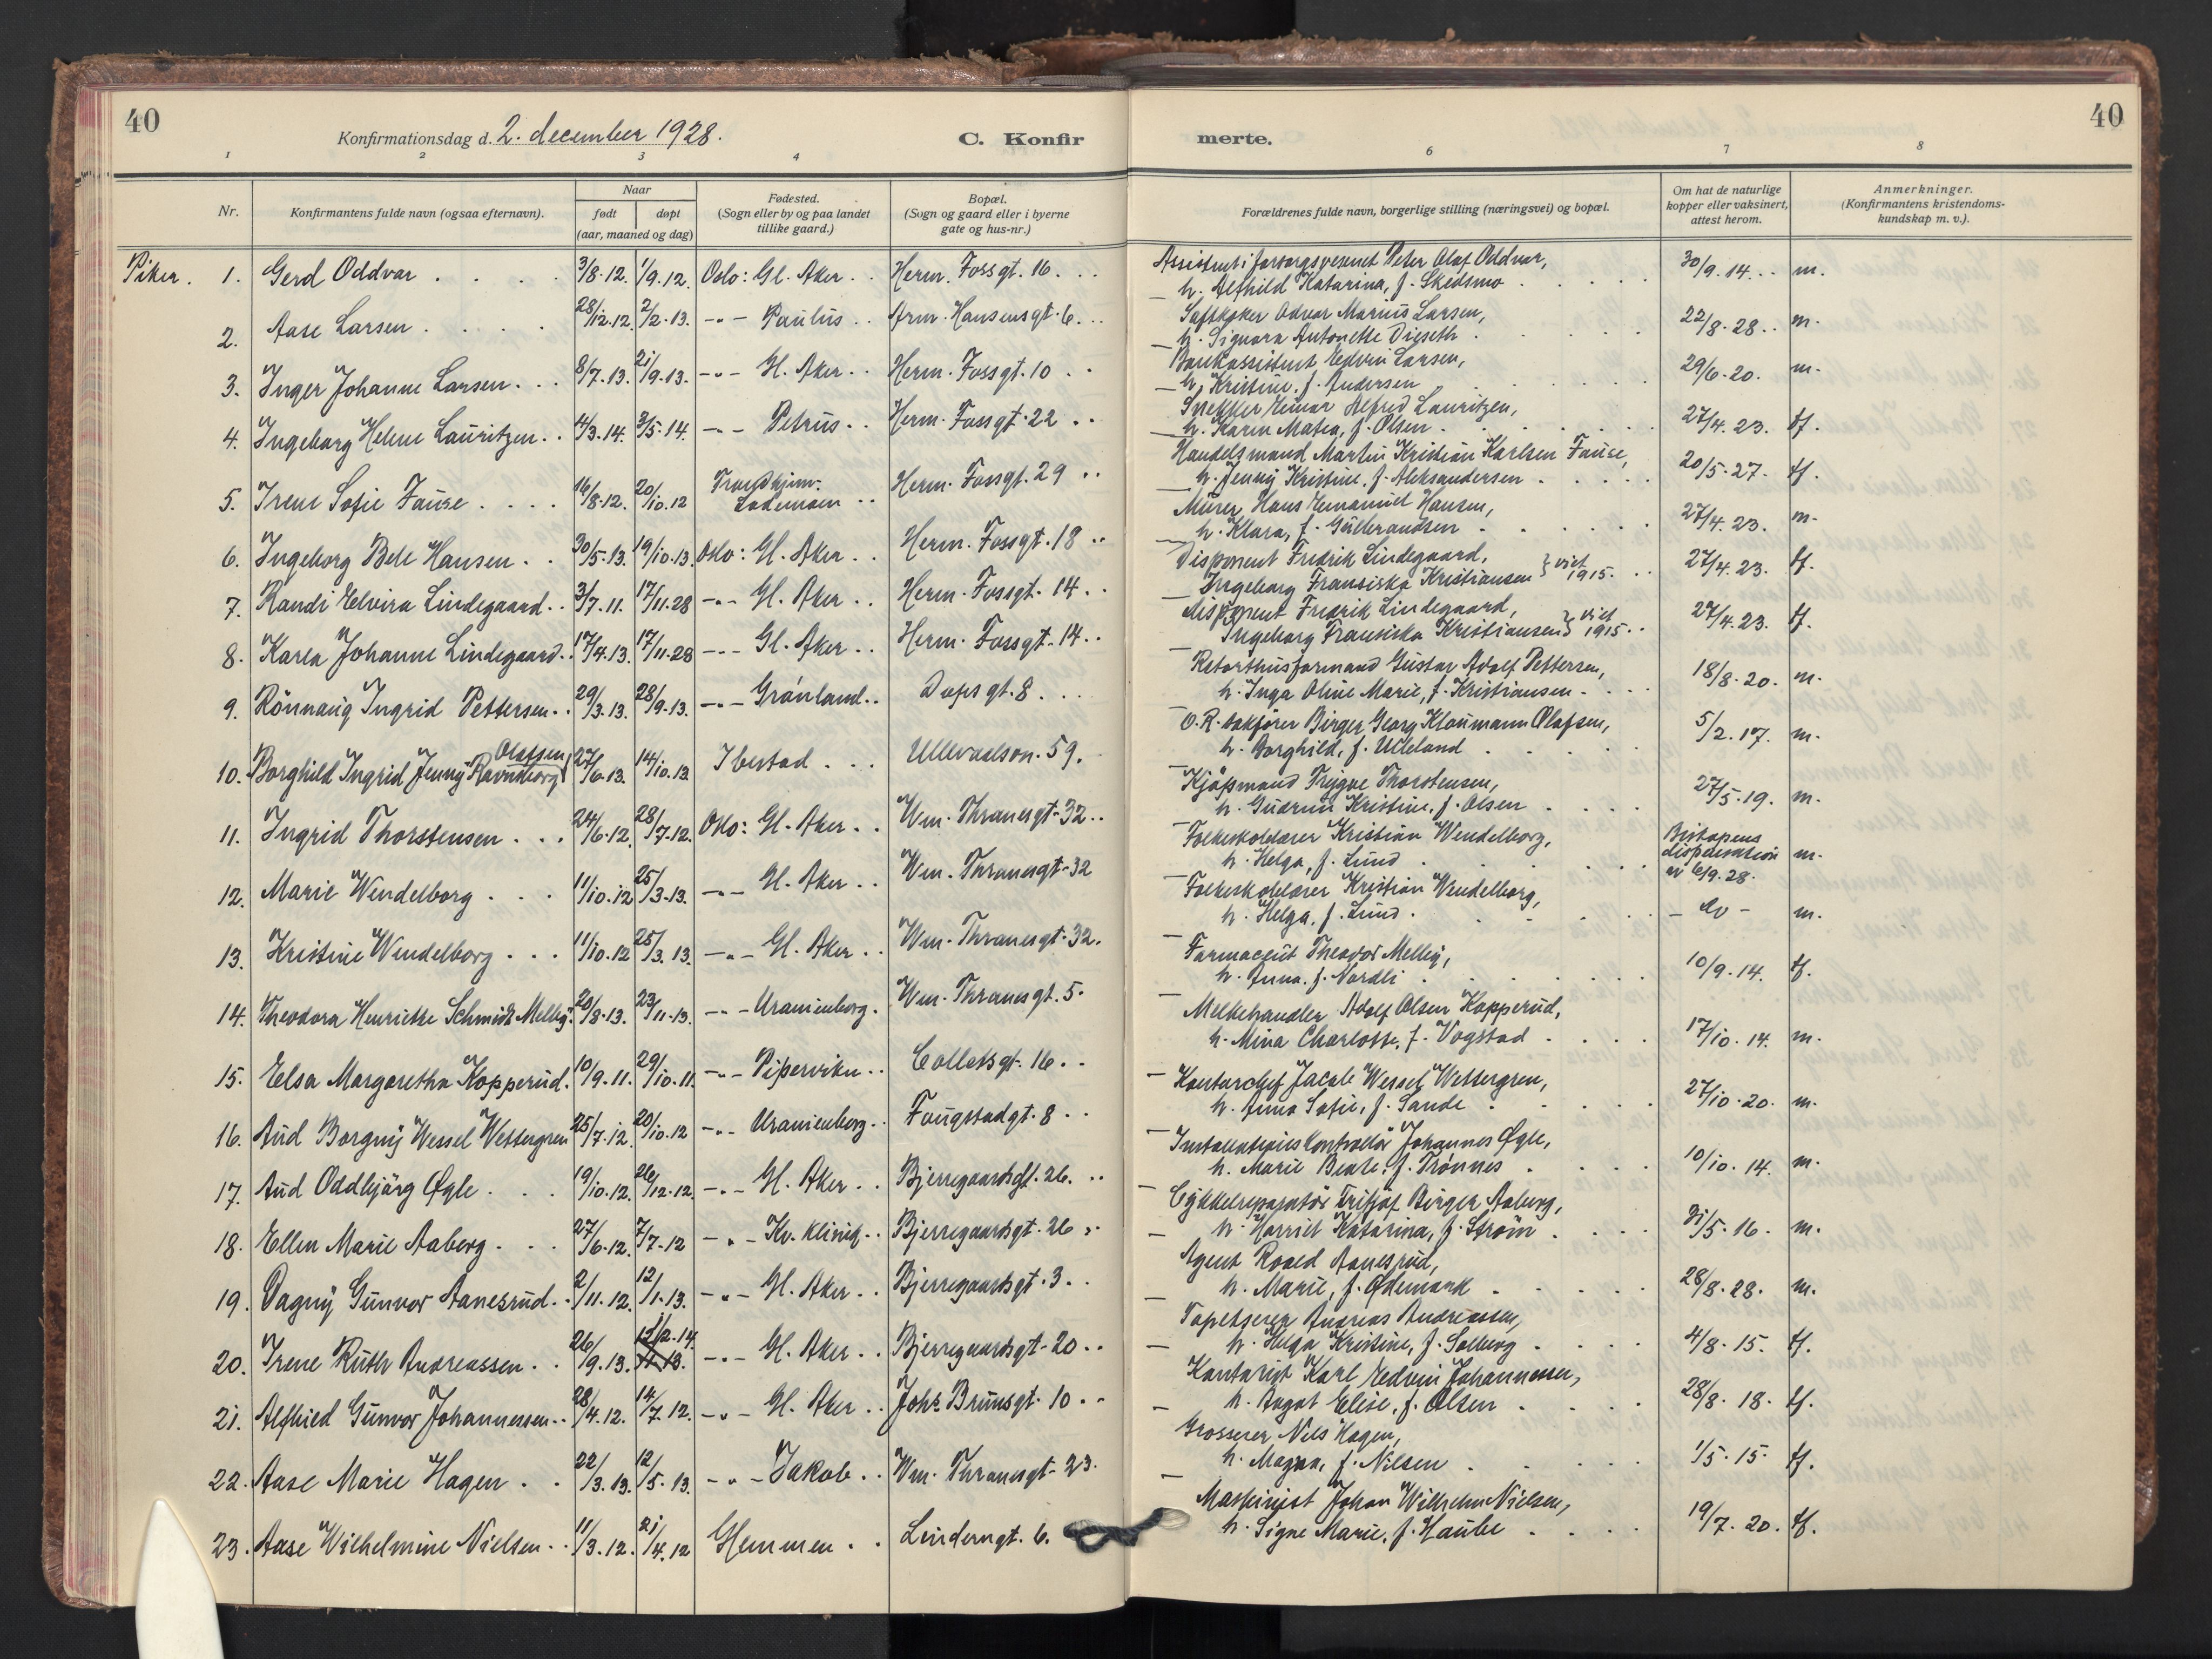 40
Konfirmationsdag d. 2. december 1928.
C. Konfir
merte.
40
1 2 3 4 6 7 8
Nr.
Konfirmantens fulde navn (ogsaa efternavn).
Naar
født døpt
(aar, maaned og dag)
Fødested.
(Sogn eller by og paa landet
tillike gaard.)
Bopæl.
(Sogn og gaard eller i byerne
gate og hus-nr.)
Forældrenes fulde navn, borgerlige stilling (næringsvei) og bopæl.
Om hat de naturlige
kopper eller vaksinert,
attest herom.
Anmerkninger.
(Konfirmantens kristendoms-
kundskap m. v.).
Piker. 1. Gerd Oddvar 3/8.12. 1/9.12. Oslo: Gl. Aker Herm. Fossgt. 16. Assistent i forsorgsvesenet Peter Olaf Oddvar, 30/9.14. m.
h. Alfhild Katarina, f. Skedsmo
2. Aase Larsen 28/12.12. 2/2.13. -"- Paulus Arm. Hansensgt. 6. Saftkoker Odvar Marius Larsen, 22/8.28. m.
h. Signora Antonette Digseth
3. Inger Johanne Larsen 8/7.13. 21/9.13. -"- Gl. Aker Herm. Fossgt. 10 Bankassistent Edvin Larsen, 29/6.20. m.
h. Kristine, f. Andersen
4. Ingeborg Helene Lauritzen 4/3.14. 3/5.14. -"- Petrus Herm. Fossgt. 22 Snekker Einar Alfred Lauritzen, 27/4.23. tf.
h. Karen Matea, f. Olsen
5. Irene Sofie Fause 16/8.12. 20/10.12 Trondhjem: Herm. Fossgt. 29 Handelsmand Martin Kristian Karlsen Fause, 20/5.27. tf.
Lademoen h. Jenny Kristine, f. Aleksandersen
6. Ingeborg Bele Hansen 30/5.13. 19/10.13. Oslo: Gl. Aker Herm. Fossgt. 18 Murer Hans Emanuel Hansen, 27/4.23. m.
h. Klara, f. Gulbrandsen
7. Randi Elvira Lindegaard 3/7.11. 17/11.28 -"- Gl. Aker Herm. Fossgt. 14 Disponent Fredrik Lindegaard, 27/4.23. tf.
Ingeborg Fransiska Kristiansen } viet 1915.
8. Karla Johanne Lindegaard 17/4.13. 17/11.28 -"- Gl. Aker Herm. Fossgt. 14 Disponent Fredrik Lindegaard, 27/4.23. tf.
Ingeborg Fransiska Kristiansen } viet 1915.
9. Rönnaug Ingrid Pettersen 29/3.13. 28/9.13. -"- Grönland Dopsgt. 8. Retorthusformand Gustav Adolf Pettersen, 18/8.20. m.
h. Inga Oline Marie, f. Kristiansen
10. Borghild Ingrid Jenny Ravndborg Olafsen 27/6.13. 14/10.13 Ibestad Ullevaalsvn. 59. O.R. sakfører Birger Georg Klaumann Olafsen, 5/2.17. m.
h. Borghild, f. Uleland
11. Ingrid Thorstensen 24/6.12. 28/7.12. Oslo: Gl. Aker Wm. Thranesgt. 32 Kjøpmand Trygve Thorstensen, 27/5.19. m.
h. Gudrun Kristine, f. Olsen
12. Marie Wendelborg 11/10.12 25/3.13. -"- Gl. Aker Wm. Thranesgt. 32 Folkeskolelærer Kristian Wendelborg, Biskopens dispensation av 6/9.28. m.
h. Helga, f. Lund
13. Kristine Wendelborg 11/10.12 25/3.13. -"- Gl. Aker Wm. Thranesgt. 32. Folkeskolelærer Kristian Wendelborg, - do - m.
h. Helga, f. Lund.
14. Theodora Henriette Schmidt Melby 20/8.13. 23/11.13. -"- Uranienborg. Wm. Thranesgt. 5. Farmaceut Theodor Melby, 10/9.14. tf.
h. Anna, f. Nordli
15. Elsa Margaretha Kopperud. 10/9.11. 29/10.11. -"- Piperviken Colletsgt. 16. Melkehandler Adolf Olsen Kopperud, 17/10.14. m.
h. Mina Charlotte, f. Vogstad
16. Aud Borgny Wessel Wettergren 25/7.12. 20/10.12 -"- Uranienborg Fougstadgt. 8 Kontorchef Jacob Wessel Wettergren, 27/10.20. m.
h. Anna Sofie, f. Sande
17. Aud Oddbjörg Øgle 19/10.12. 26/12.12. -"- Gl. Aker Bjerregaardsgt. 26. Installationskontrollör Johannes Øgle, 10/10.14. m.
h. Marie Beate, f. Trönnes
18. Ellen Marie Aaberg 27/6.12. 7/7.12 -"- Kv. klinik Bjerregaardsgt. 26 Cykkelreparatör Fritjof Birger Aaberg, 31/5.16. m.
h. Harriet Katarina, f. Ström
19. Dagny Gunvor Aanesrud 2/11.12. 12/1.13. -"- Gl. Aker Bjerregaardsgt. 3. Agent Roald Aanesrud, 28/8.28. m.
h. Marie, f. Ødemark
20. Irene Ruth Andreassen 26/9.13. 1/2.14. -"- Gl. Aker Bjerregaardsgt. 20 Tapetserer Andreas Andreassen, 4/8.15. tf.
h. Helga Kristine, f. Solberg
21. Alfhild Gunvor Johannessen 28/4.12. 14/7.12. -"- Gl. Aker Johs. Brunsgt. 10 Kontorist Karl Edvin Johannessen, 28/8.18. tf.
h. Aagot Elise, f. Olsen
22. Aase Marie Hagen 22/3.13. 12/5.13. -"- Jakob Wm. Thranesgt. 23. Grosserer Nils Hagen, 1/5.15. tf.
h. Magna, f. Nilsen
23. Aase Wilhelmine Nielsen 11/3.12. 21/4.12 Hemmen Linderngt. 6. Maskinist Johan Wilhelm Nielsen, 19/7.20. tf.
h. Signe Marie, f. Haube